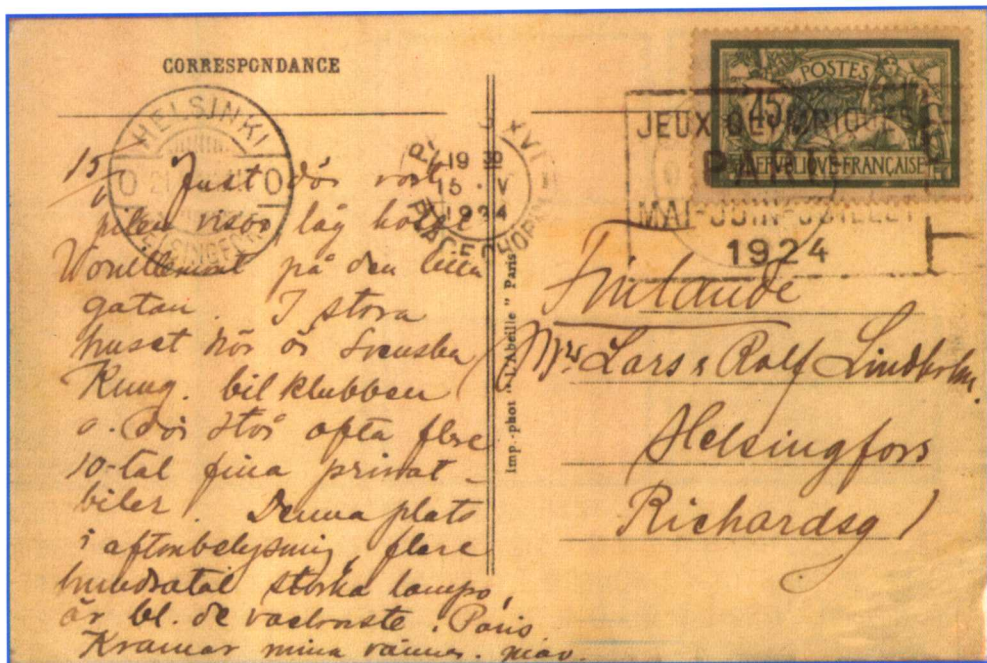 CORRESPONDANCE
HELSINKI
HELSINGFORS
19 30
15 · V
1924
PLACE CHOPIN
XVI
POSTES
45
REPUBLIQUE FRANÇAISE
JEUX OLYMPIQUES
PARIS
MAI-JUIN-JUILLET
1924
15/
Just där vort
pilen visar, låg
på den lilla
gatan. I stora
huset här är Svenska
Kung. bilklubben
o. där står ofta flere
10-tal fina privat-
biler. Denna plats
i aftonbelysning, flere
hundratal starka lampor,
är bl. de vackraste i Paris.
Kramar mina vänner.
Imp.-phot "L'Abeille" Paris
Finlande
Mrs Lars & Rolf Lindholm.
Helsingfors
Richardsg 1